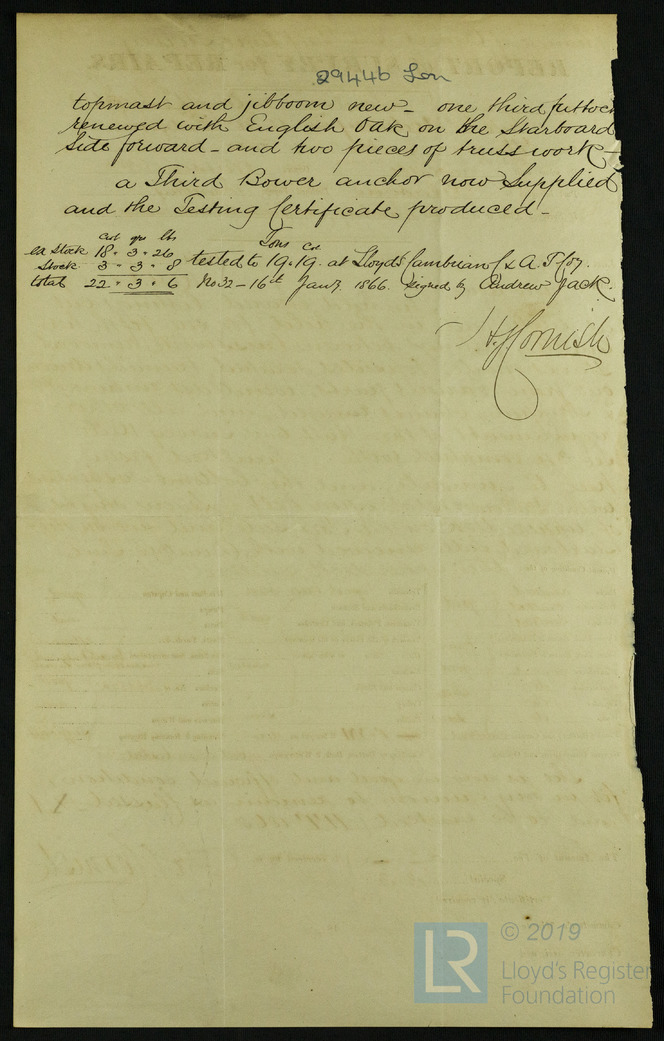 29446 Lon
topmast and jibboom new - one third futtock
renewed with English Oak on the Starboard
Side forward - and two pieces of truss work -
a Third Bower anchor now Supplied
and the Testing Certificate produced -
cwt qrs lbs
Tons Cwt
ex Stock 18 . 3 . 26
Stock 3 . 3 . 8 tested to 19 . 19 . at Lloyds Cambrian C & A. T. Coy.
total 22 . 3 . 6 No 32 - 16th Jany. 1866. signed by Andrew Jack.
Cornish
© 2019
LR Lloyd's Register
Foundation